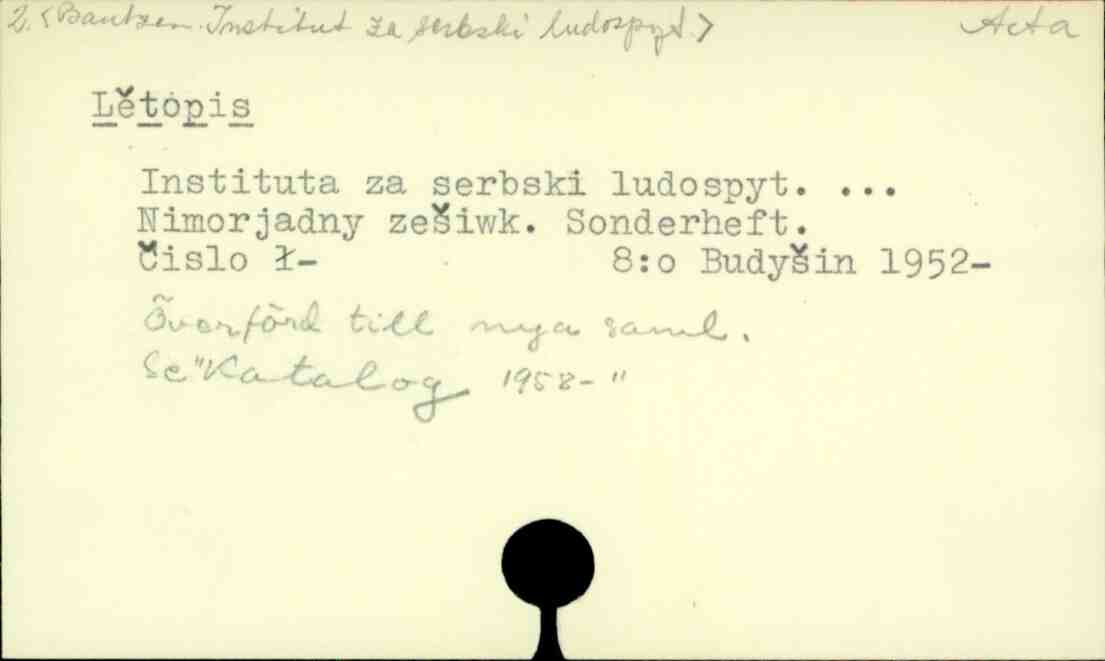 2. <Bautzen. Institut za serbski ludospyt.> Acta
Lětopis
Instituta za serbski ludospyt. ...
Nimorjadny zešiwk. Sonderheft.
Čislo ł- 8:o Budyšin 1952-
Överförd till nya saml.
Se "Katalog 1958-"